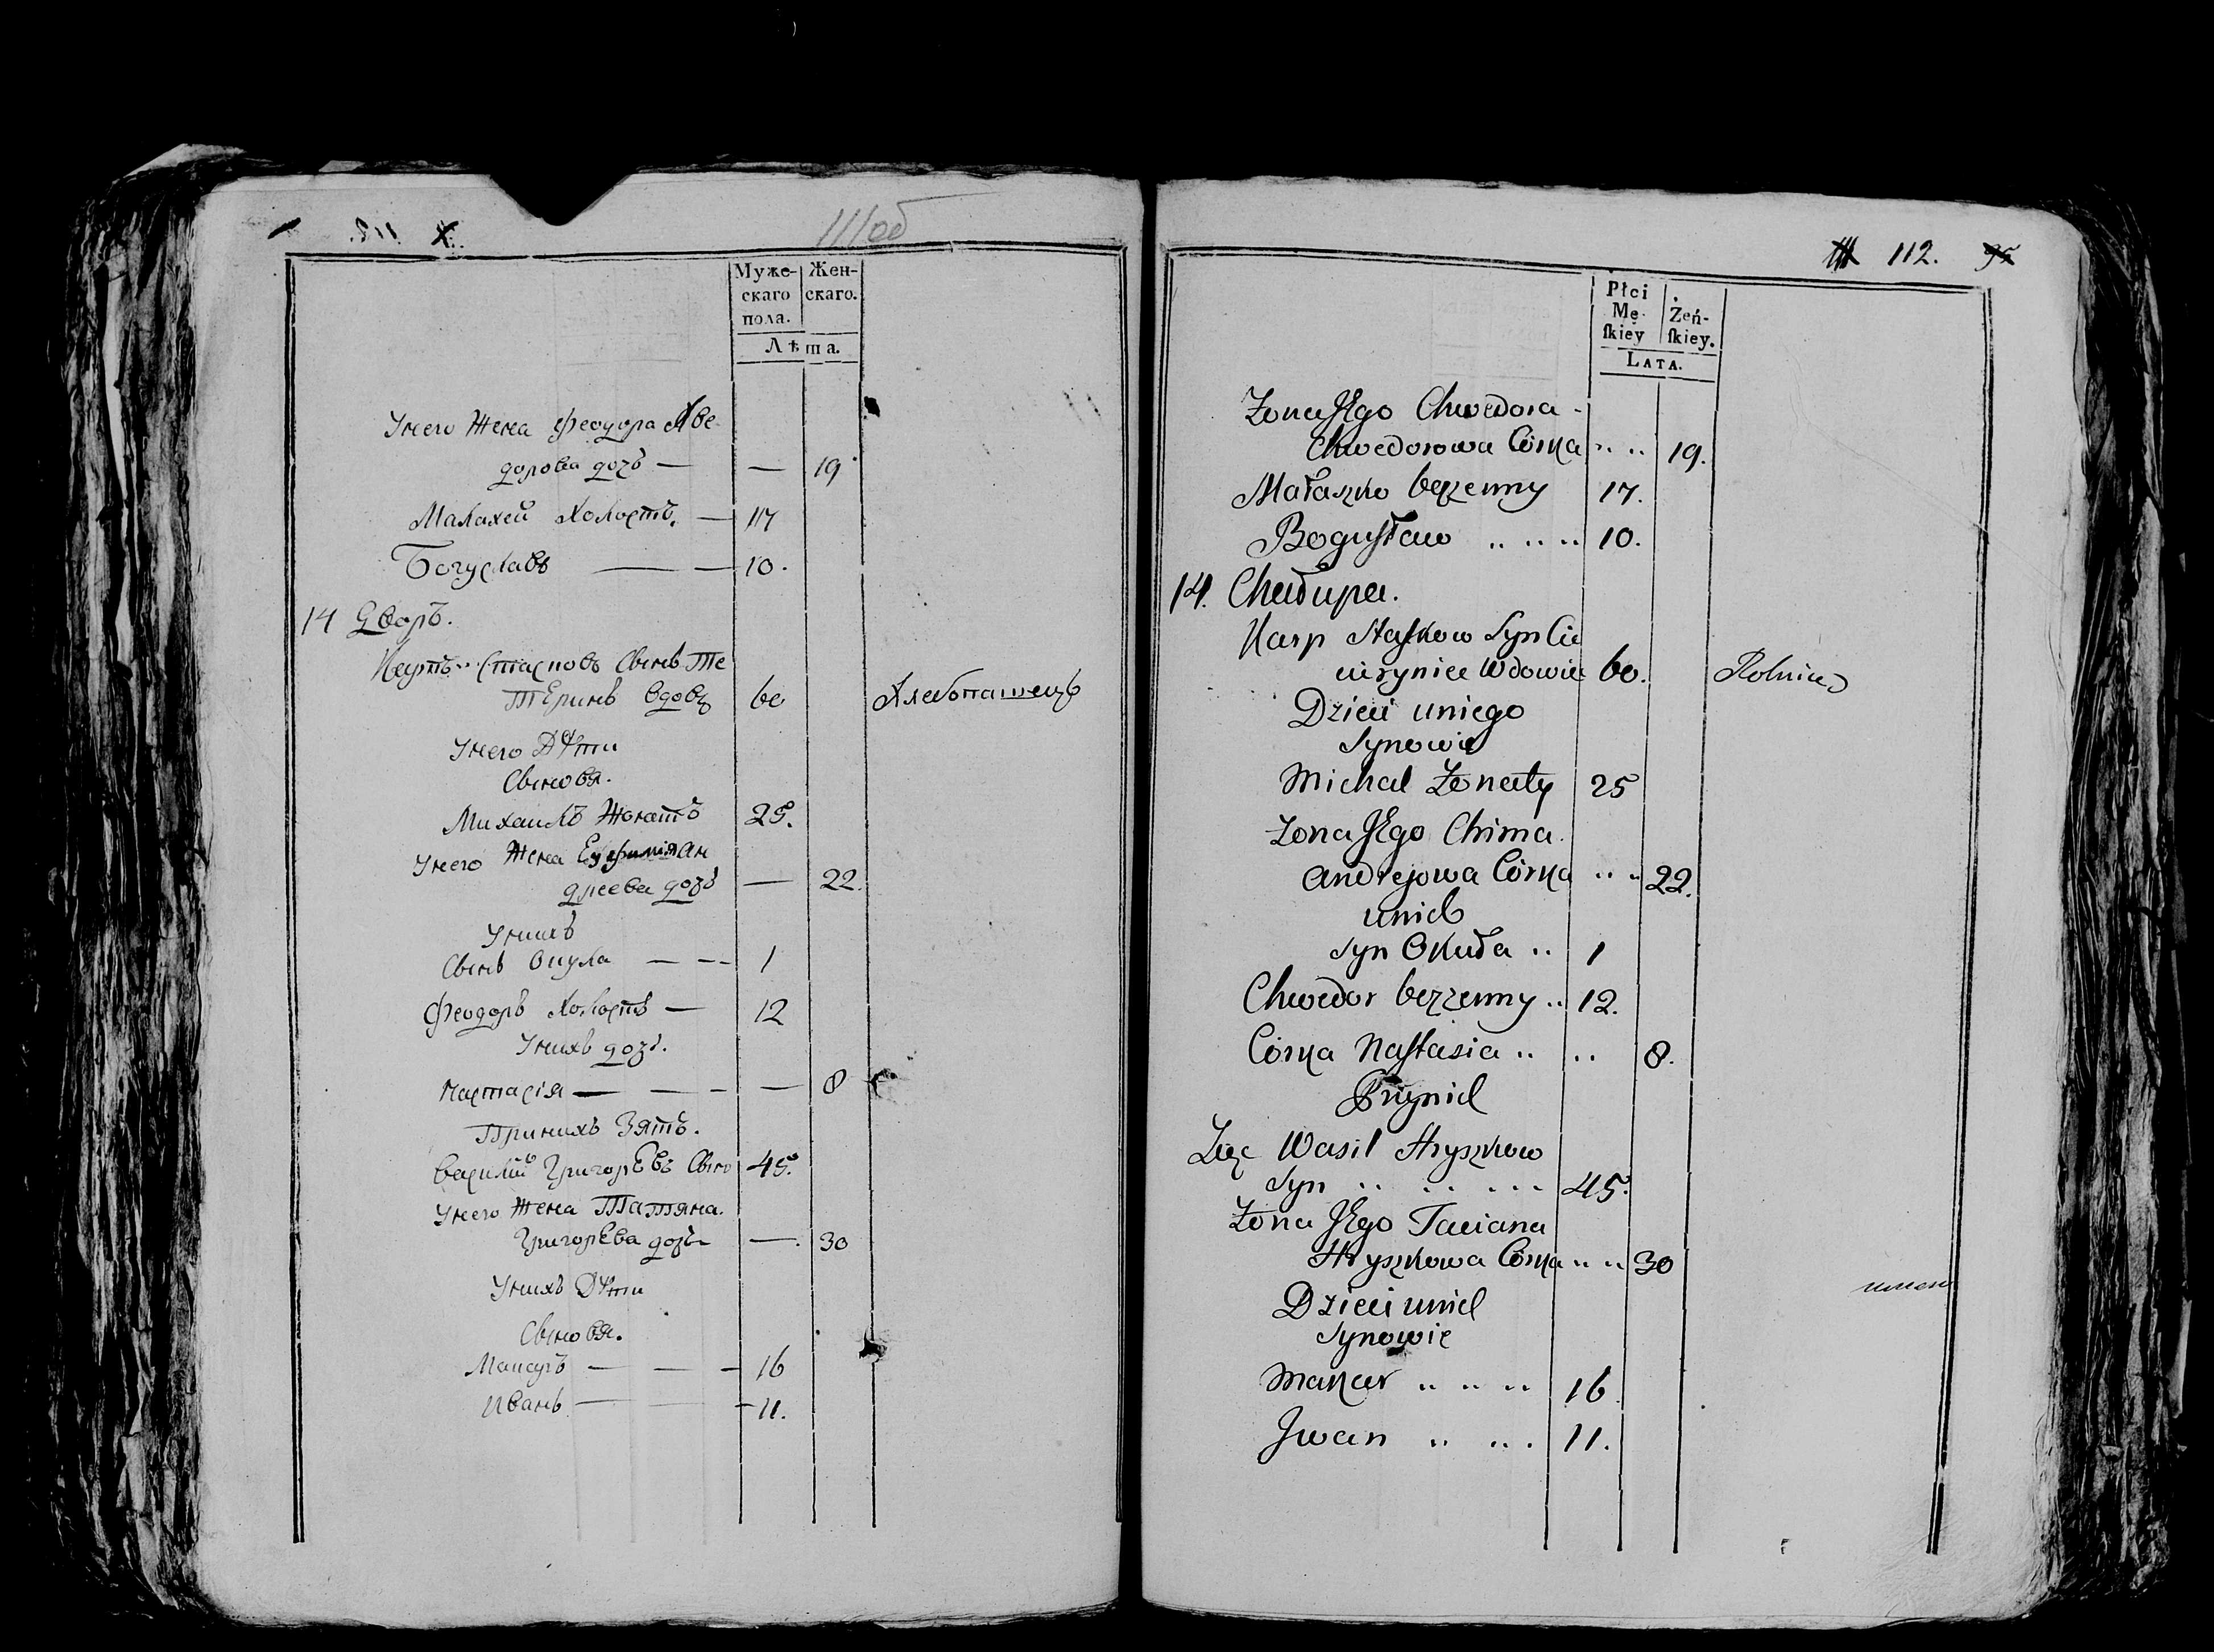 111об
Муже- Жен-
скаго скаго.
пола.
Лѣта.
Унего Жена Феодора Хве
дорова дочь — — 19
Малахей Холостъ. — 17
Богуславъ — — 10.
14 Дворъ.
Карпъ Стасковъ Сынъ Те
теринъ вдовъ 60 Хлебопашецъ
Унего Дѣти
Сыновя.
Михаилъ Жонатъ 25.
Унего Жена Еуфимія Ан
дреева дочь — 22.
Унихъ
Сынъ Окула — -- 1
Феодоръ Холостъ — 12
Унихъ дочь.
Настасія — — - — 8
Принихъ Зять.
Василій Григорьевъ Сынъ 45.
Унего Жена Татяна.
Григорьева дочь — 30
Унихъ Дѣти
Сыновя.
Макаръ — — - 16
Иванъ — — 11.
112.
Płci
Mę- Żeń-
ſkiey ſkiey.
LATA.
Zona Jego Chwedora -
Chwedorowa Córka .. .. 19.
Małaszko bezzenny 17.
Bogusław .. .. .. 10.
14. Chałupa.
Karp Staśkow Syn Cie
cierynicz Wdowiec 60. Rolnick
Dzieci uniego
Synowie
Michal Zonaty 25
Zona Jego Chima.
Andrejowa Córka .. .. 22.
unich
Syn Okuła .. 1
Chwedor bezzenny .. 12.
Córka Nastasia .. .. 8.
Przynich
Zięc Wasil Hryszkow
Syn .. .. ... 45.
Zona Jego Taciana
Hryszkowa Córka .. .. 30
Dzieci unich
Synowie
Makar .. .. .. 16
Jwan .. ... 11.